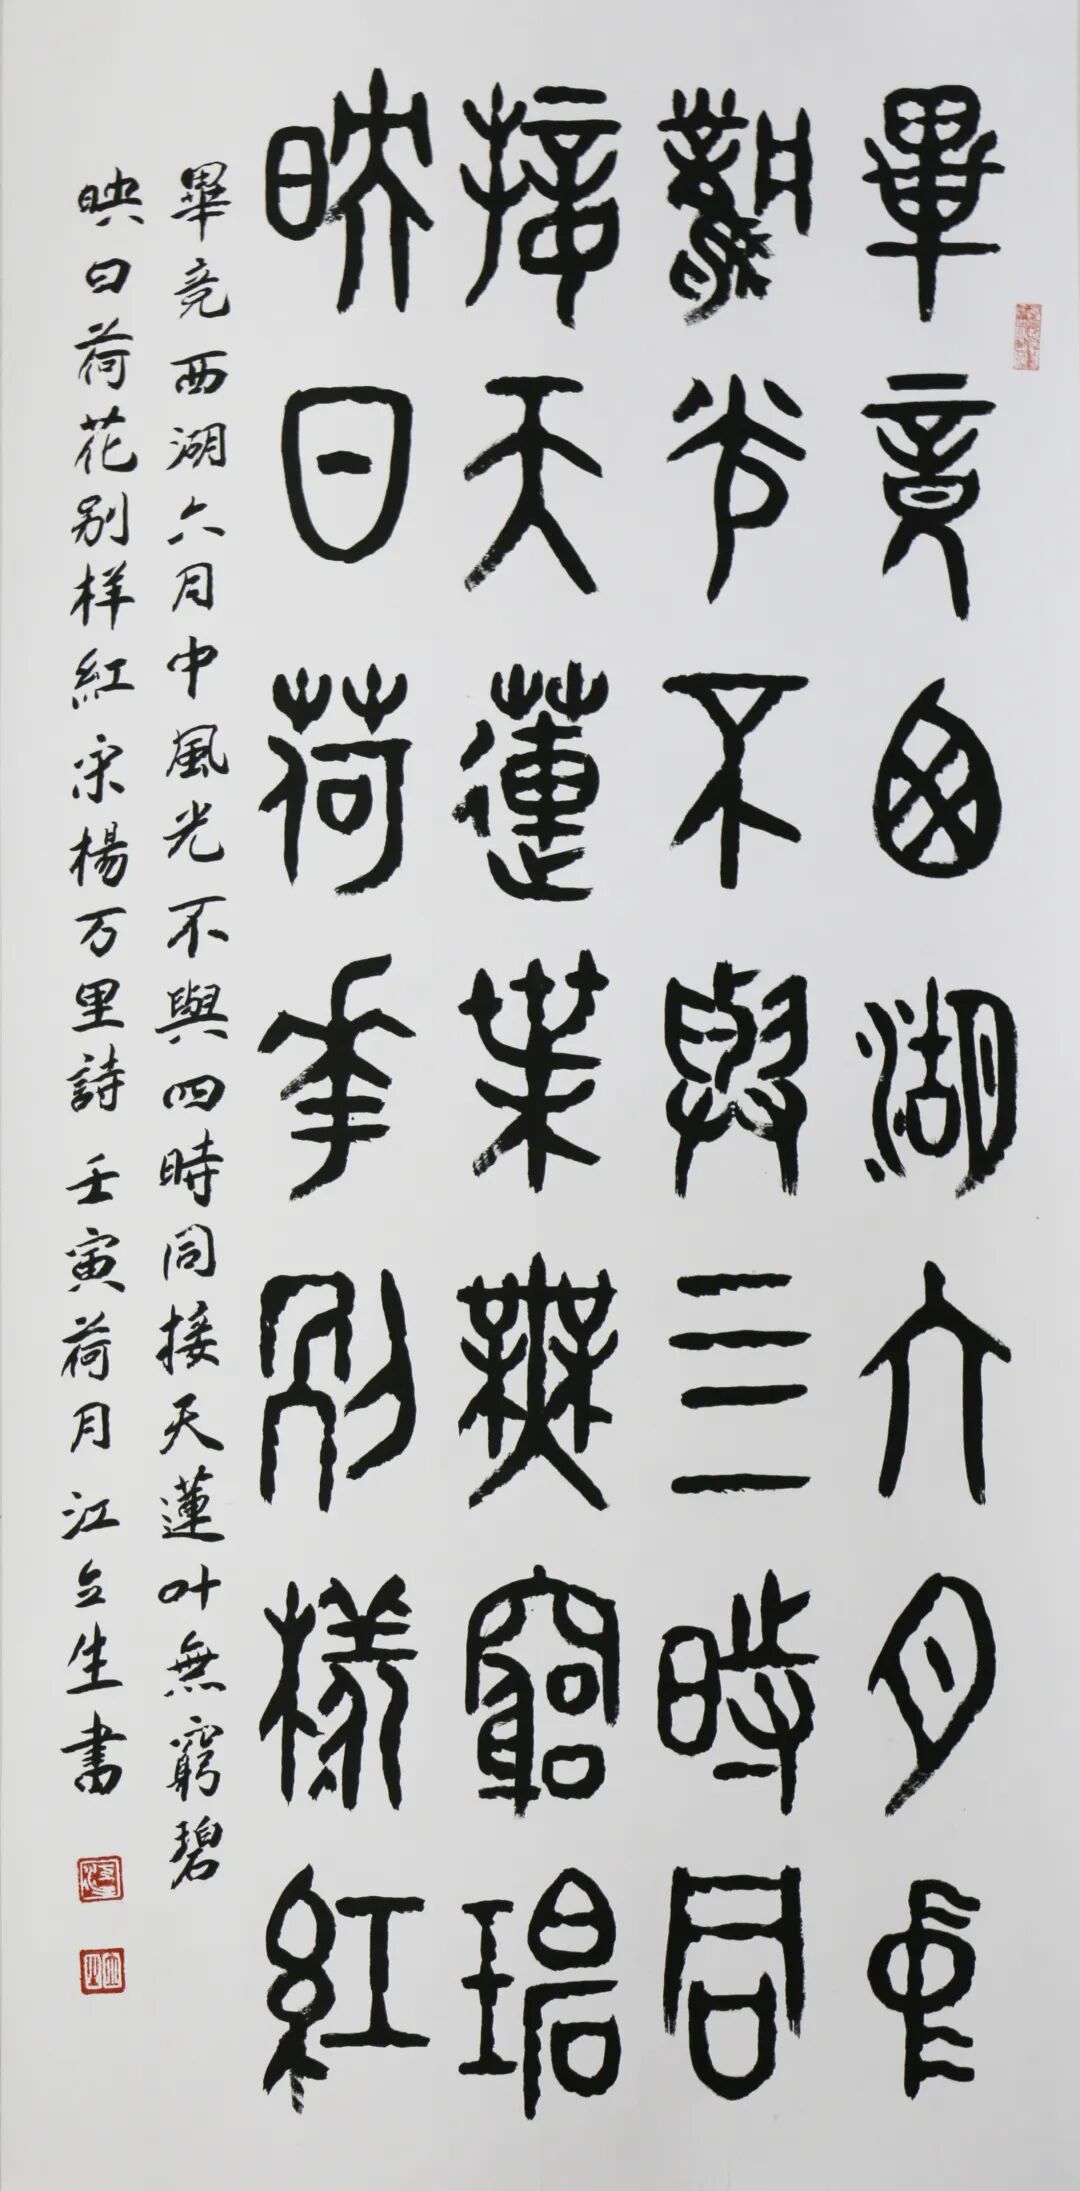 畢竟西湖六月中
風光不與三時同
接天蓮葉無窮碧
映日荷華別樣紅
畢竟西湖六月中風光不與四時同接天蓮叶無窮碧
映日荷花别样紅宋楊万里詩壬寅荷月江立生書